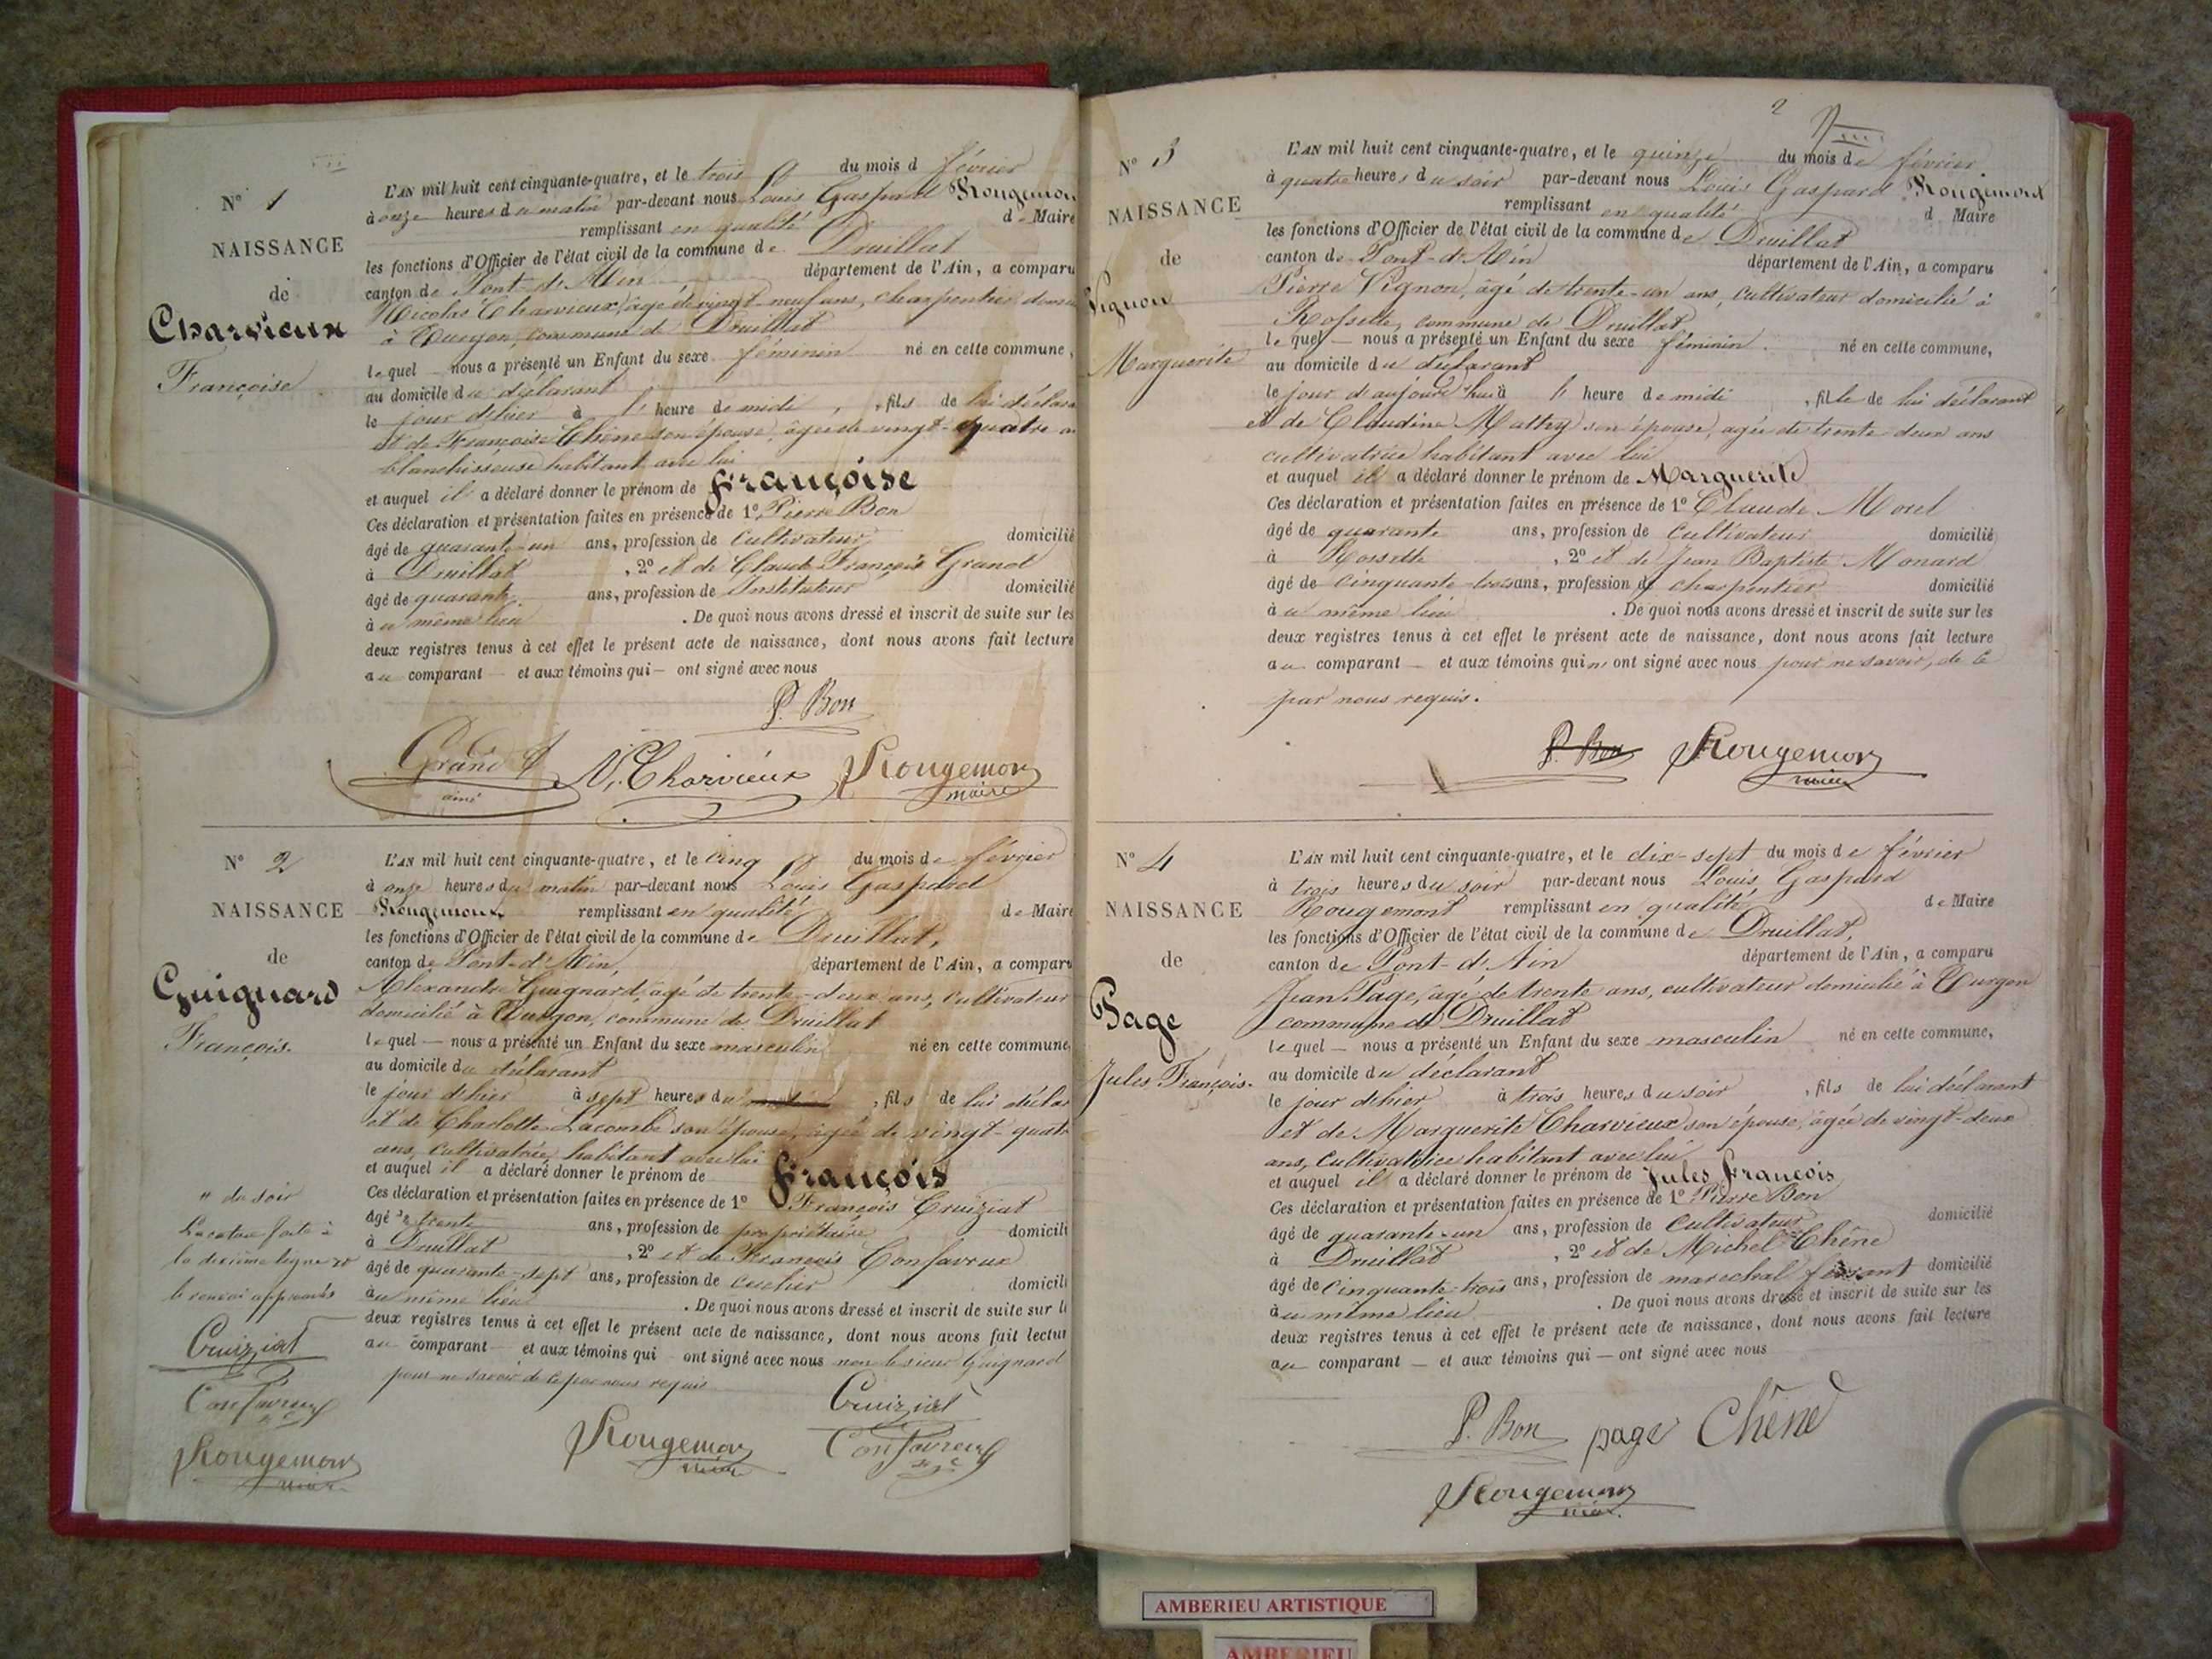 N° 1
NAISSANCE
de
Charvieux
Françoise
L'AN mil huit cent cinquante-quatre, et le trois du mois d février
à onze heures du matin par-devant nous Louis Gaspard Rougemon
remplissant en qualité de Maire
les fonctions d'Officier de l'état civil de la commune de Druillat
canton de Pont-d'Ain département de l'Ain, a comparu
Nicolas Charvieux, âgé de vingt-neuf ans, charpentier
à Turgon, commune de Druillat
lequel nous a présenté un Enfant du sexe féminin né en cette commune,
au domicile du déclarant
le jour d'hier à l' heure de midi, fils de lui
et de Françoise Chêne son épouse, âgée de vingt-quatre
blanchisseuse habitant avec lui
et auquel il a déclaré donner le prénom de Françoise
Ces déclaration et présentation faites en présence de 1° Pierre Bon
âgé de quarante-un ans, profession de Cultivateur domicilié
à Druillat, 2° et de Claude François Grand
âgé de quarante ans, profession de Instituteur domicilié
à u même lieu. De quoi nous avons dressé et inscrit de suite sur les
deux registres tenus à cet effet le présent acte de naissance, dont nous avons fait lecture
au comparant et aux témoins qui ont signé avec nous
P. Bon
Grand
aîné
N. Charvieux
Rougemon
maire
N° 2
NAISSANCE
de
Guignard
François.
L'AN mil huit cent cinquante-quatre, et le cinq du mois de février
à onze heures du matin par-devant nous Louis Gaspard
Rougemont remplissant en qualité de Maire
les fonctions d'Officier de l'état civil de la commune de Druillat,
canton de Pont-d'Ain, département de l'Ain, a comparu
Alexandre Guignard, âgé de trente-deux ans, cultivateur
domicilié à Turgon, commune de Druillat
lequel nous a présenté un Enfant du sexe masculin né en cette commune,
au domicile du déclarant
le jour d'hier à sept heures du, fils de lui
et de Charlotte Lacombe son épouse, âgée de vingt-quatre
ans, cultivatrice, habitant avec lui
et auquel il a déclaré donner le prénom de François
Ces déclaration et présentation faites en présence de 1° François Cruiziat
âgé de trente ans, profession de propriétaire domicili
à Druillat, 2° et de François Confavreux
âgé de quarante-sept ans, profession de domicili
au même lieu. De quoi nous avons dressé et inscrit de suite sur l
deux registres tenus à cet effet le présent acte de naissance, dont nous avons fait lectur
au comparant et aux témoins qui ont signé avec nous non le sieur Guignard
pour ne savoir de ce par nous requis
" du soir
La rature faite à
la dixième ligne et
le renvoi approuvés
Cruiziat
Confavreux
Rougemon
maire
Rougemon
maire
Cruiziat
Confavreux
2
N° 3
NAISSANCE
de
Vignon
Marguerite
L'AN mil huit cent cinquante-quatre, et le quinze du mois de février
à quatre heures du soir par-devant nous Louis Gaspard Rougemond
remplissant en qualité d Maire
les fonctions d'Officier de l'état civil de la commune de Druillat
canton de Pont-d'Ain département de l'Ain, a comparu
Pierre Vignon, âgé de trente-un ans, cultivateur domicilié à
Rossette, commune de Druillat
lequel nous a présenté un Enfant du sexe féminin né en cette commune,
au domicile du déclarant
le jour d'aujourd'hui à l' heure de midi, fille de lui déclarant
et de Claudine Mathy son épouse, âgée de trente deux ans
cultivatrice habitant avec lui
et auquel il a déclaré donner le prénom de Marguerite
Ces déclaration et présentation faites en présence de 1° Claude Morel
âgé de quarante ans, profession de Cultivateur domicilié
à Rossette, 2° et de Jean Baptiste Monard
âgé de cinquante-trois ans, profession de charpentier domicilié
à u même lieu. De quoi nous avons dressé et inscrit de suite sur les
deux registres tenus à cet effet le présent acte de naissance, dont nous avons fait lecture
au comparant et aux témoins qui n' ont signé avec nous pour ne savoir, de ce
par nous requis.
P. Bon
Rougemon
maire
N° 4
NAISSANCE
de
Page
Jules François.
L'AN mil huit cent cinquante-quatre, et le dix-sept du mois de février
à trois heures du soir par-devant nous Louis Gaspard
Rougemont remplissant en qualité de Maire
les fonctions d'Officier de l'état civil de la commune de Druillat,
canton de Pont-d'Ain département de l'Ain, a comparu
Jean Page, âgé de trente ans, cultivateur domicilié à Turgon
commune de Druillat
lequel nous a présenté un Enfant du sexe masculin né en cette commune,
au domicile du déclarant
le jour d'hier à trois heures du soir, fils de lui déclarant
et de Marguerite Charvieux son épouse, âgée de vingt-deux
ans, cultivatrice habitant avec lui
et auquel il a déclaré donner le prénom de Jules François
Ces déclaration et présentation faites en présence de 1° Pierre Bon
âgé de quarante-un ans, profession de Cultivateur domicilié
à Druillat, 2° et de Michel Chêne
âgé de cinquante-trois ans, profession de marechal ferrant domicilié
à u même lieu. De quoi nous avons dressé et inscrit de suite sur les
deux registres tenus à cet effet le présent acte de naissance, dont nous avons fait lecture
au comparant et aux témoins qui ont signé avec nous
P. Bon page Chêne
Rougemon
maire
AMBERIEU ARTISTIQUE
AMBERIEU